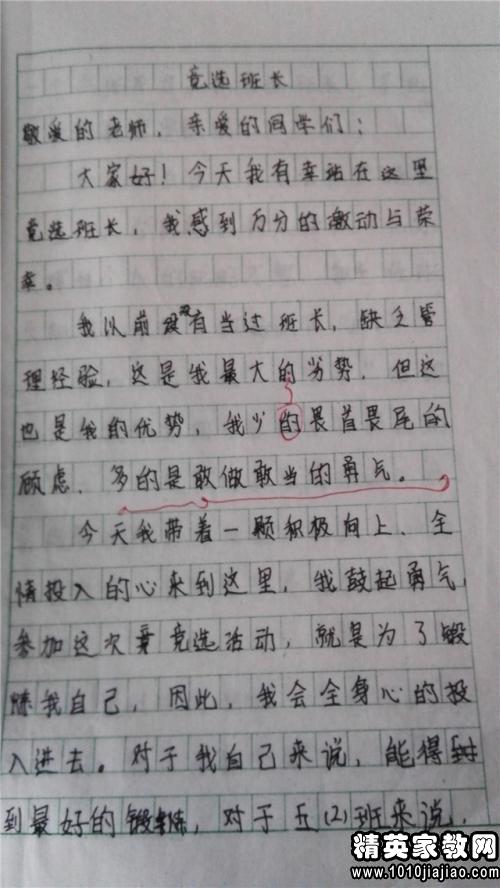 竞选班长
敬爱的老师，亲爱的同学们：
大家好！今天我有幸站在这里
竞选班长，我感到万分的激动与荣
幸。
我以前没有当过班长，缺乏管
理经验，这是我最大的劣势．但这
也是我的优势，我少的畏首畏尾的
顾虑．多的是敢做敢当的勇气。
今天我带着一颗积极向上、全
情投入的心来到这里，我鼓起勇气，
参加这次竞选活动，就是为了锻
炼我自己，因此，我会全身心的投
入进去。对于我自己来说，能得
到最好的锻炼，对于五(2)班来说，
精英家教网
www.1010jiajiao.com